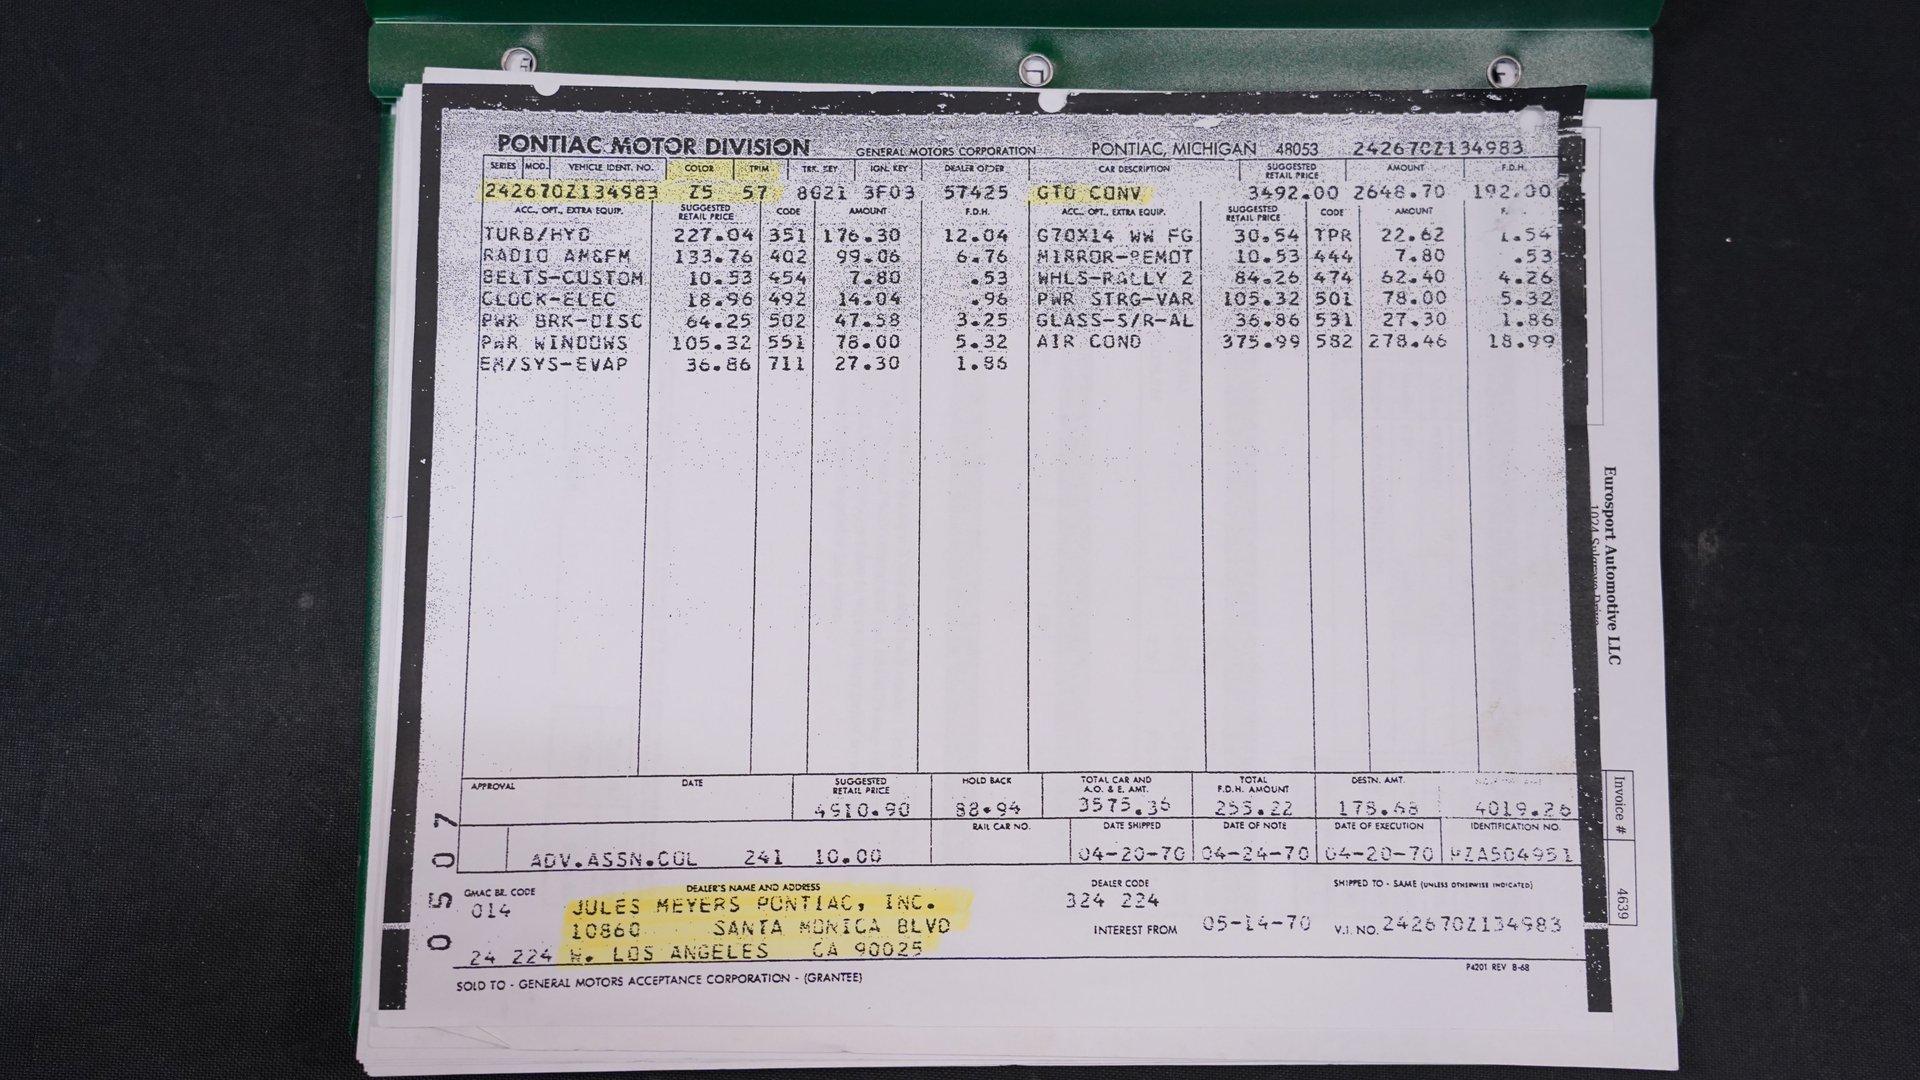 PONTIAC MOTOR DIVISION GENERAL MOTORS CORPORATION PONTIAC, MICHIGAN 48053 242670Z134983
SERIES MOD. VEHICLE IDENT. NO. COLOR TRIM TRK. KEY IGN. KEY DEALER ORDER CAR DESCRIPTION SUGGESTED RETAIL PRICE AMOUNT F.D.H.
242670Z134983 Z5 57 8G21 3F03 57425 GTO CONV 3492.00 2648.70 192.00
ACC., OPT., EXTRA EQUIP. SUGGESTED RETAIL PRICE CODE AMOUNT F.D.H. ACC., OPT., EXTRA EQUIP. SUGGESTED RETAIL PRICE CODE AMOUNT
TURB/HYD 227.04 351 176.30 12.04 G70X14 WW FG 30.54 TPR 22.62 1.54
RADIO AM&FM 133.76 402 99.06 6.76 MIRROR-REMOT 10.53 444 7.80 .53
BELTS-CUSTOM 10.53 454 7.80 .53 WHLS-RALLY 2 84.26 474 62.40 4.26
CLOCK-ELEC 18.96 492 14.04 .96 PWR STRG-VAR 105.32 501 78.00 5.32
PWR BRK-DISC 64.25 502 47.58 3.25 GLASS-S/R-AL 36.86 531 27.30 1.86
PWR WINDOWS 105.32 551 78.00 5.32 AIR COND 375.99 582 278.46 18.99
EM/SYS-EVAP 36.86 711 27.30 1.86
APPROVAL DATE SUGGESTED RETAIL PRICE HOLD BACK TOTAL CAR AND A.O. & E. AMT. TOTAL F.D.H. AMOUNT DESTN. AMT.
4910.90 88.94 3575.36 255.22 178.68 4019.26
RAIL CAR NO. DATE SHIPPED DATE OF NOTE DATE OF EXECUTION IDENTIFICATION NO.
ADV.ASSN.COL 241 10.00 04-20-70 04-24-70 04-20-70
GMAC BR. CODE DEALER'S NAME AND ADDRESS DEALER CODE SHIPPED TO - SAME (UNLESS OTHERWISE INDICATED)
014 JULES MEYERS PONTIAC, INC. 324 224
10860 SANTA MONICA BLVD INTEREST FROM 05-14-70 V.I. NO. 242670Z134983
24 224 W. LOS ANGELES CA 90025
P4201 REV 8-68
SOLD TO - GENERAL MOTORS ACCEPTANCE CORPORATION - (GRANTEE)
0507
Eurosport Automotive LLC
Invoice # 4639